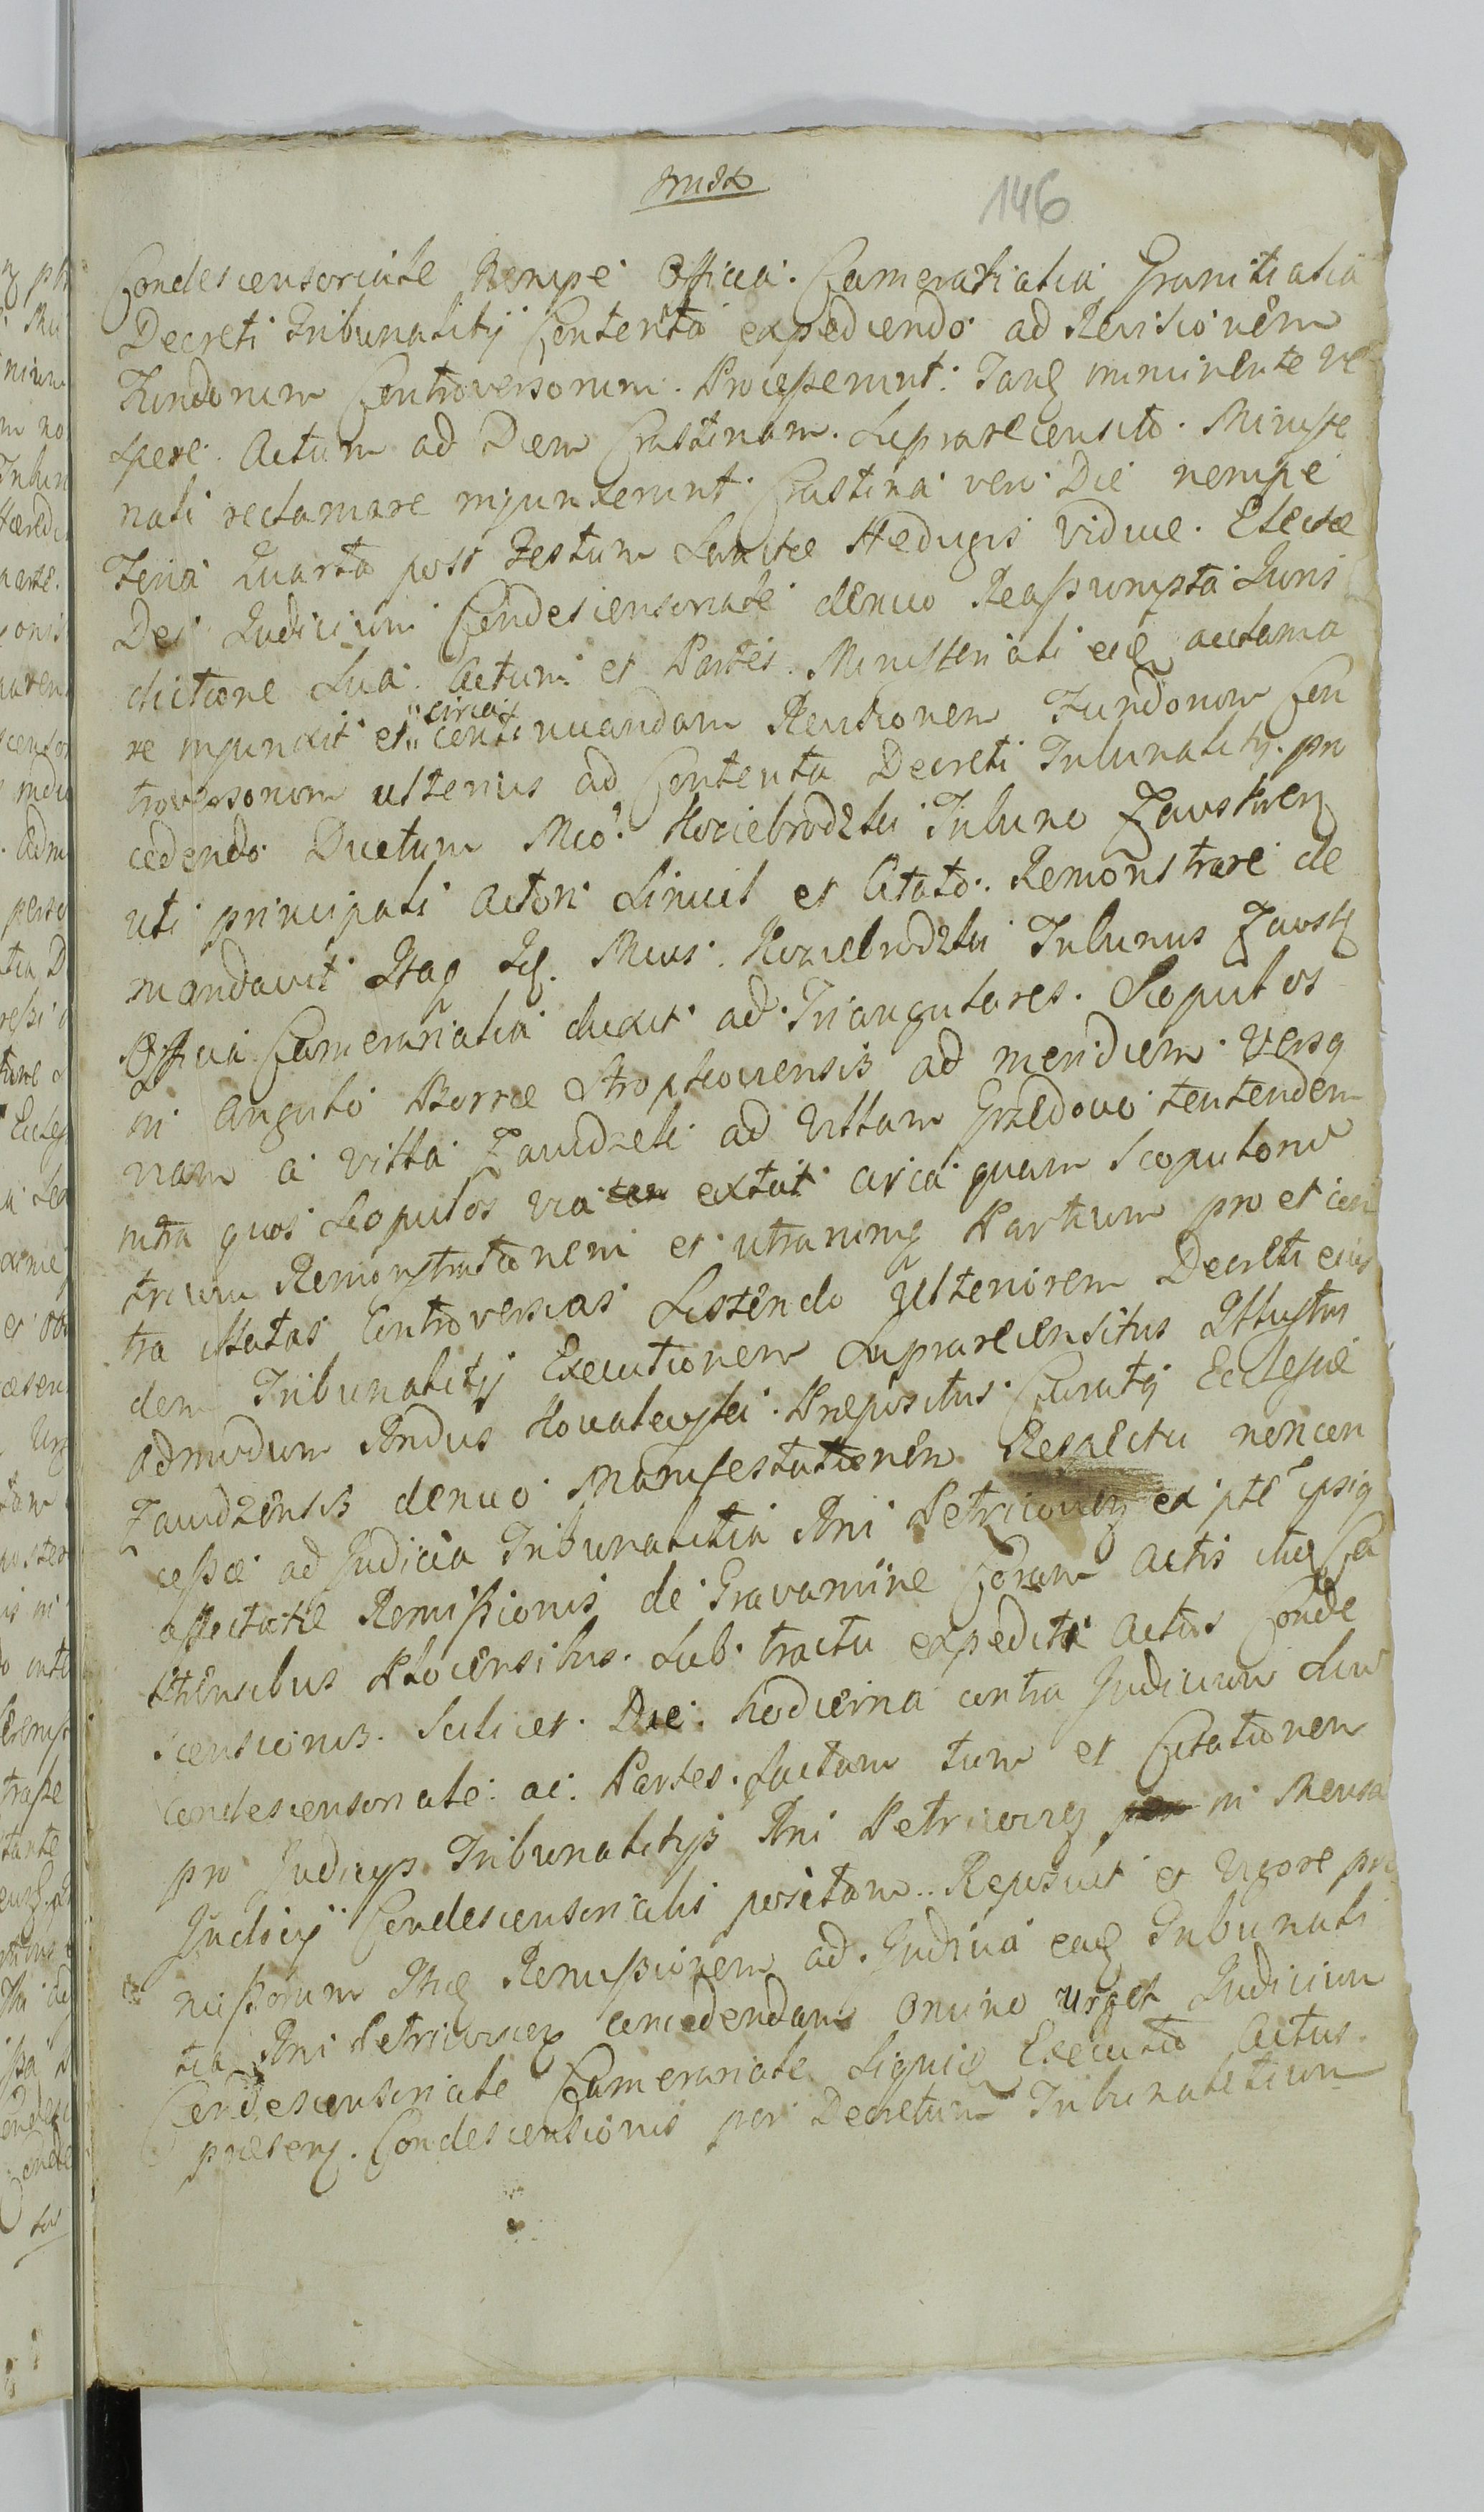 146
Condescensoriale Nempe Officia Camerarialia Granitialia
Decreti Tribunalitij Contenta expediendo ad Revisionem
Fundorum Controversorum. Processerunt. Tanq imminente ve
spere. Actum ad Diem Crastinam. Suprarecensito. Ministe
riali reclamare injunxerunt. Crastina vero Die nempe
Feria Quarta post Festum Sanctae Hedvigis Viduae. Electae
Dei Judicium Condescensoriale denuo Reassumpta Juris
dictione Sua. Actum et Partes. Ministeriali eiq acclama
re injunxit et circa continuandam Revisionem Fundorum Con
troversorum ulterius ad Contenta Decreti Tribunalitij. pro
cedendo Ductum Mco. Koziebrodzki Tribuno Zawskren
uti principali Actori Simul et Citato. Remonstrare de
mandavit Itaq Mcus. Koziebrodzki Tribunus Zawsk
Officia Camerarialia duxit ad Triangulares. Scopulos
in Angulo Borrae Stropkoviensis ad meridiem Versq
viam a villa Zawidzki ad Villam Grzedowo tentendem
intra quos Scopulos via extat circa quam Scopulorum
trium Remonstrationem et utrarumq Partium pro et con
tra illatas Controversias Sistendo Ulteriorem Decreti eius
dem Tribunalitij Executionem Suprarecensitus Illustris
Admodum Rndus Kowalewski. Praepositus Curatq Ecclesiae
Zawidzensis denuo Manifestationem Respectu noncon
cessae ad Judicia Tribunalitia Rni Petricovien ex pte ipsiq
affectatae Remissionis de Gravamine Coram Actis Ca
strensibus Plocensibus. Sub tractu expediti Actus Conde
scensionis. Scilicet. Die. hodierna contra Judicium Suum
Condescensoriale. ac. Partes. factam tum et Citationem
pro Judicijs Tribunalitijs Rni Petricovien in Mensa
Judicij Condescensorialis positam. Reposuit et Vigore pro
missorum Remissionem ad Judicia eaq Tribunali
tia Rni Petricovien concedendam omnino urget Judicium
Condescensoriale Camerariale Siquid Executio Actus
praesen. Condescensionis per Decretum Tribunalitium